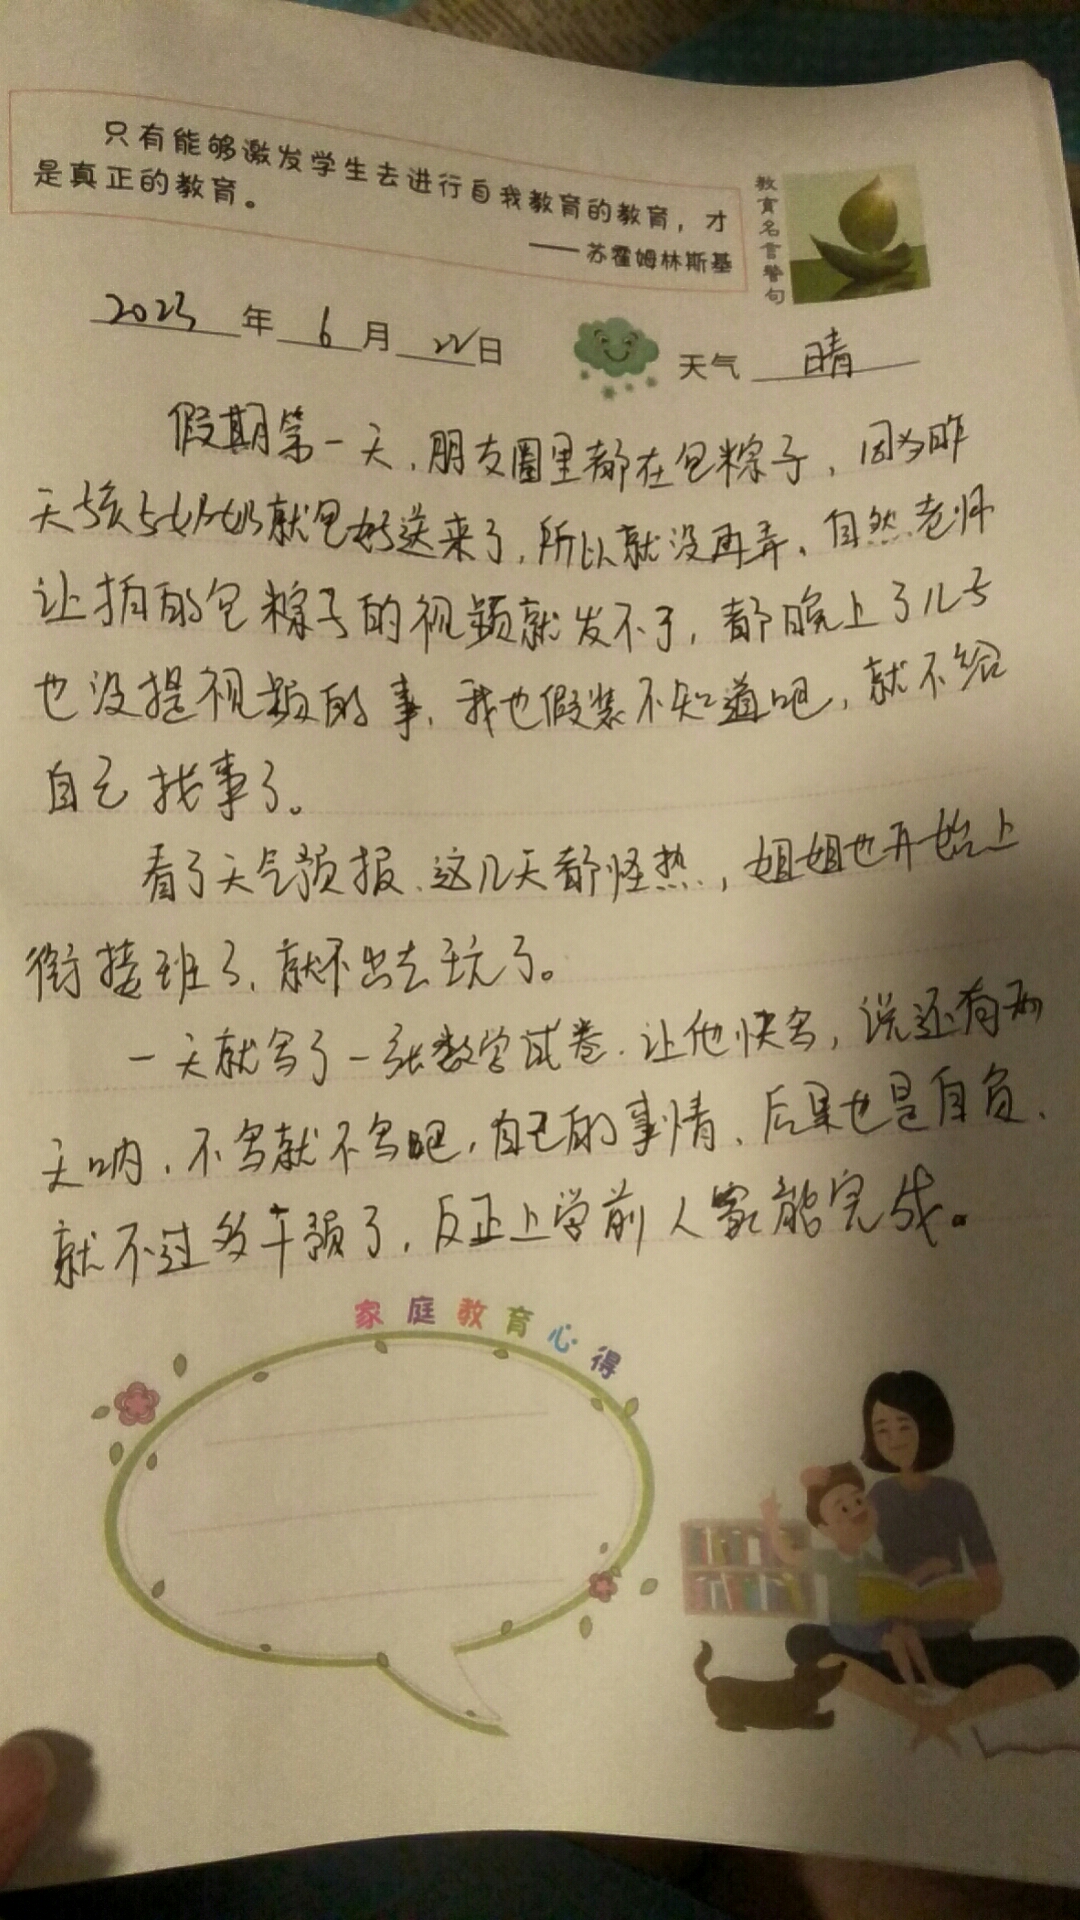 只有能够激发学生去进行自我教育的教育，才
是真正的教育。
——苏霍姆林斯基
教育名言警句
2023年6月22日 天气 晴
假期第一天，朋友圈里都在包粽子，因为昨
天孩与奶奶就包好送来了，所以就没再弄，自然老师
让拍的包粽子的视频就发不了，都晚上了儿子
也没提视频的事，我也假装不知道吧，就不给
自己找事了。
看了天气预报、这几天都怪热，姐姐也开始上
衔接班了，就不出去玩了。
一天就写了一张数学试卷．让他快写，说还有两
天呐，不写就不写吧，自己的事情、后果也是自负、
就不过多干预了，反正上学前人家能完成。
家庭教育心得